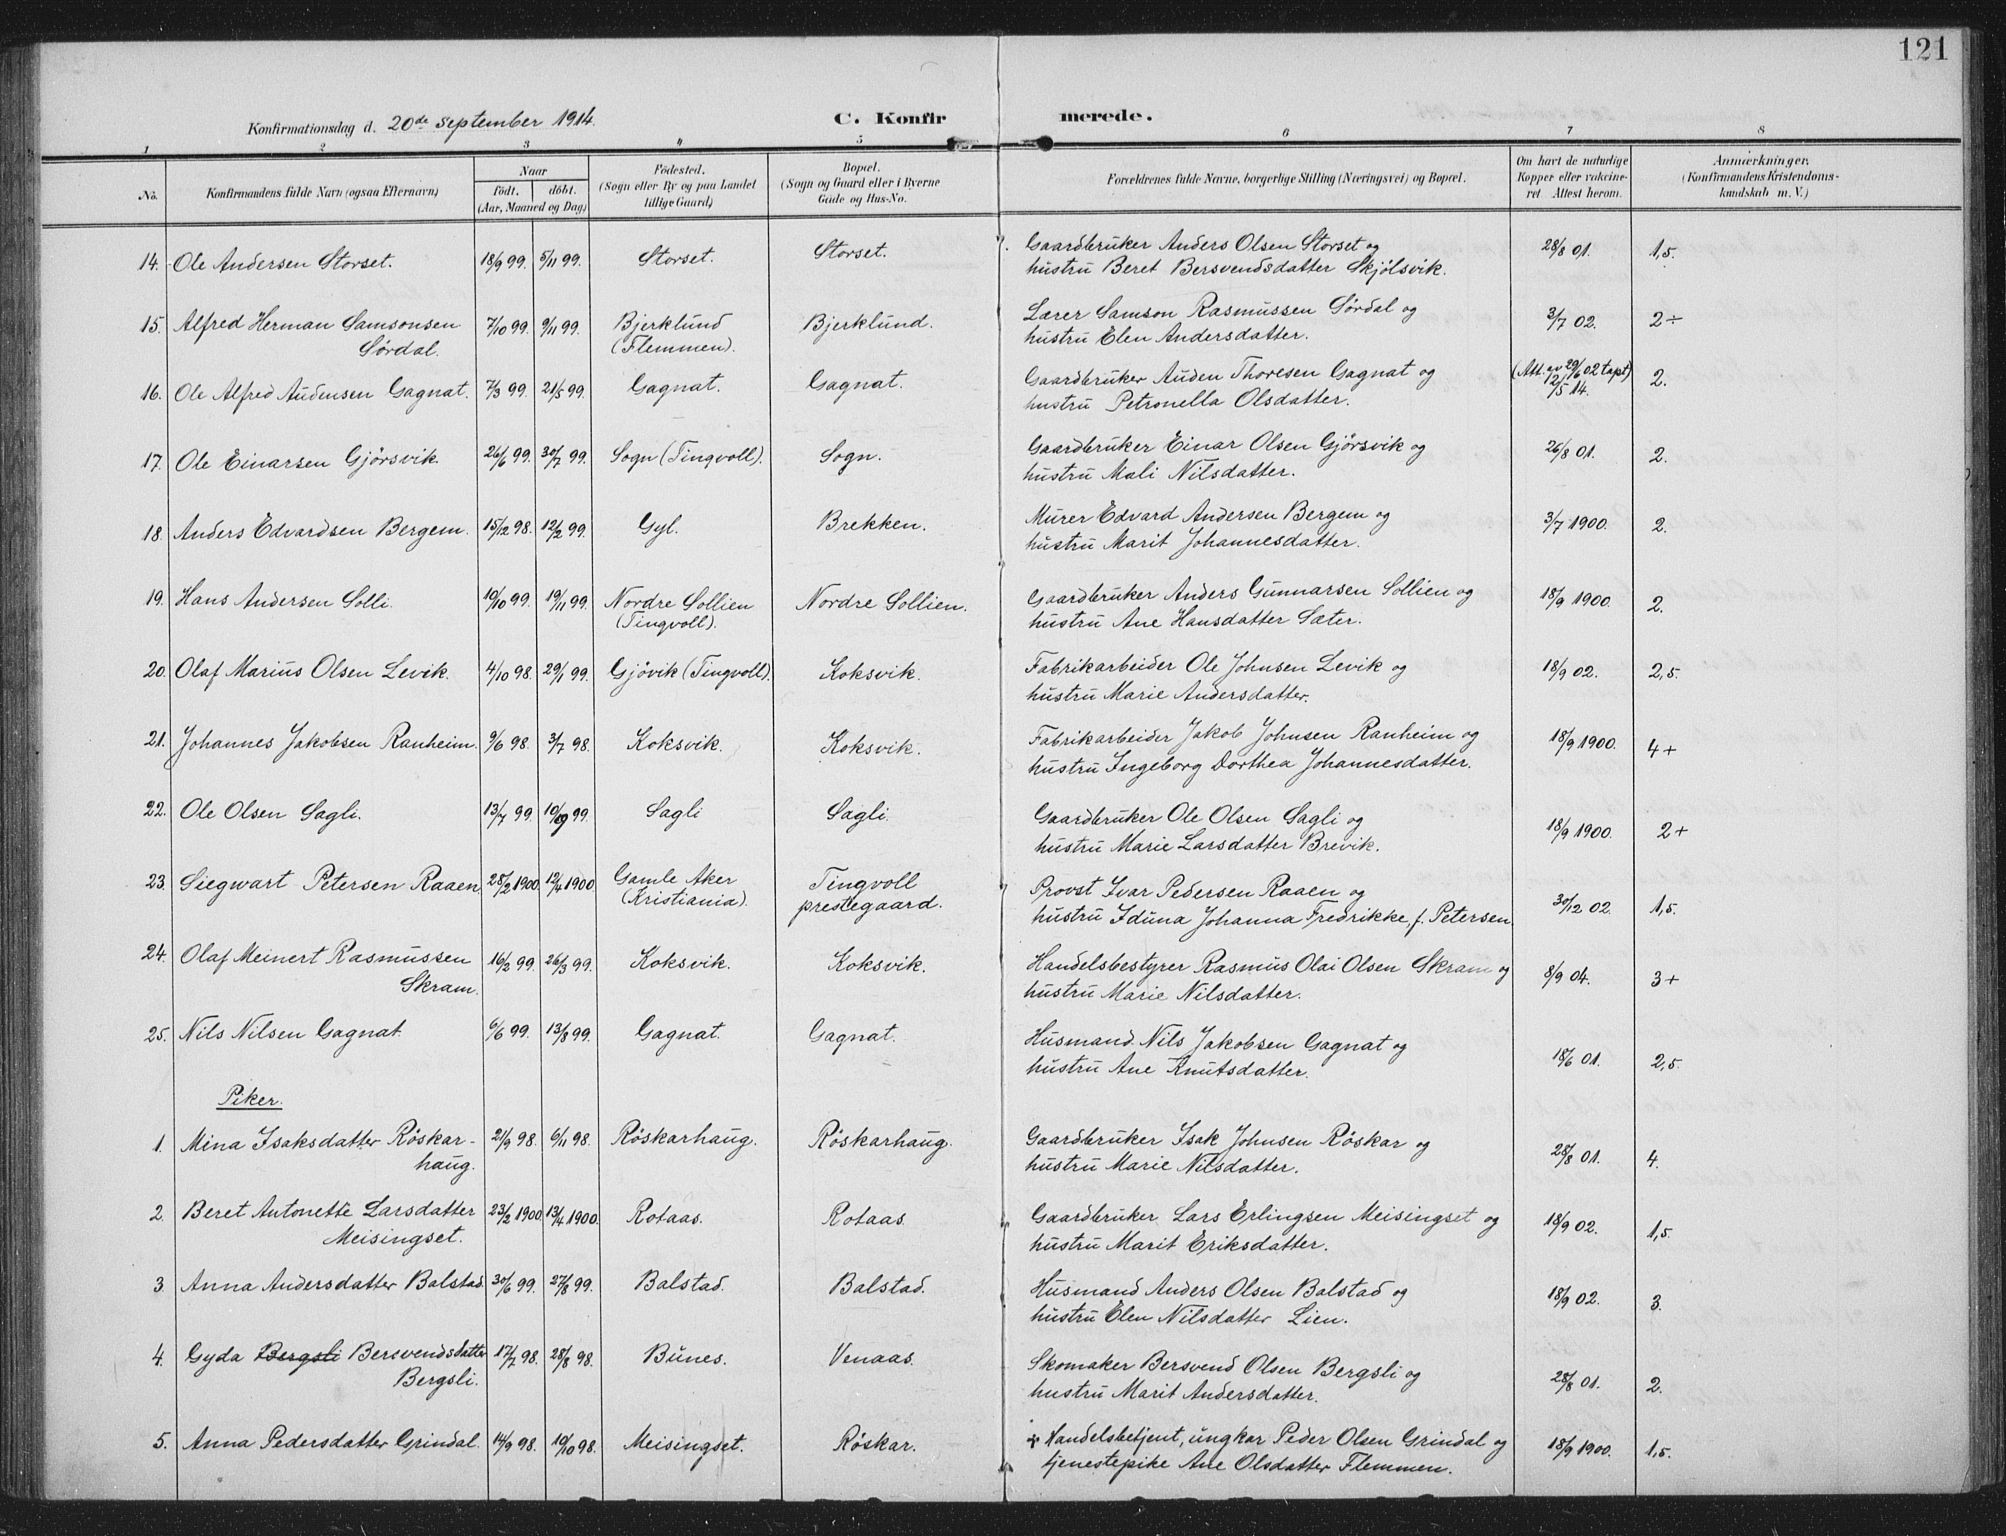 121
Konfirmationsdag d. 20de September 1914.
C. Konfirmerede.
1 2 3 4 5 6 7 8
No. Konfirmandens fulde Navn (ogsaa Efternavn) Naar födt. döbt. (Aar, Maaned og Dag) Födested. (Sogn eller By og paa Landet tillige Gaard) Bopæl. (Sogn og Gaard eller i Byerne Gade og Hus-No. Forældrenes fulde Navne, borgerlige Stilling (Næringsvei) og Bopæl. Om havt de naturlige Kopper eller vakcineret Attest herom. Anmærkninger. (Konfirmandens Kristendomskundskab m. V.)
14. Ole Andersen Storset. 18/9 99. 5/11 99. Storset. Storset. Gaardbruker Anders Olsen Storset og 28/8 01. 1,5.
hustru Beret Bersvendsdatter Skjölsvik.
15. Alfred Herman Samsonsen 7/10 99. 9/11 99. Bjerklund Bjerklund. Lærer Samson Rasmussen Sördal og 3/7 02. 2÷
Sördal. (Flemmen). hustru Elen Andersdatter.
16. Ole Alfred Audensen Gagnat. 7/3 99. 21/5 99. Gagnat. Gagnat. Gaardbruker Auden Thoresen Gagnat og (Att. av 29/6 02 tapt) 2.
hustru Petronella Olsdatter. 12/5 14.
17. Ole Einarsen Gjörsvik. 26/6 99. 30/7 99. Sogn (Tingvoll). Sogn. Gaardbruker Einar Olsen Gjörsvik og 26/8 01. 2.
hustru Mali Nilsdatter.
18. Anders Edvardsen Bergem. 15/12 98. 12/2 99. Gyl. Brekken. Murer Edvard Andersen Bergem og 3/7 1900. 2.
hustru Marit Johannesdatter.
19. Hans Andersen Solli. 10/10 99. 19/11 99. Nordre Sollien Nordre Sollien. Gaardbruker Anders Gunnarsen Sollien og 18/9 1900. 2.
(Tingvoll). hustru Ane Hansdatter Sæter.
20. Olaf Marius Olsen Levik. 4/10 98. 29/1 99. Gjövik (Tingvoll). Koksvik. Fabrikarbeider Ole Johnsen Levik og 18/9 02. 2,5.
hustru Marie Andersdatter.
21. Johannes Jakobsen Ranheim. 9/6 98. 3/7 98. Koksvik. Koksvik. Fabrikarbeider Jakob Johnsen Ranheim og 18/9 1900. 4+
hustru Ingeborg Dorthea Johannesdatter.
22. Ole Olsen Sagli. 13/7 99. 10/9 99. Sagli Sagli. Gaardbruker Ole Olsen Sagli og 18/9 1900. 2+
hustru Marie Larsdatter Brevik.
23. Siegwart Petersen Raaen 28/2 1900. 12/4 1900. Gamle Aker Tingvoll Provst Ivar Pedersen Raaen og 30/12 02. 1,5.
(Kristiania). prestegaard. hustru Iduna Johanna Fredrikke, f. Petersen.
24. Olaf Meinert Rasmussen 16/2 99. 26/3 99. Koksvik. Koksvik. Handelsbestyrer Rasmus Olai Olsen Skram og 8/9 04. 3+
Skram. hustru Marie Nilsdatter.
25. Nils Nilsen Gagnat. 6/6 99. 13/8 99. Gagnat. Gagnat. Husmand Nils Jakobsen Gagnat og 18/6 01. 2,5.
hustru Ane Knutsdatter.
Piker.
1. Mina Isaksdatter Röskar- 21/9 98. 6/11 98. Röskarhaug. Röskarhaug. Gaardbruker Isak Johnsen Röskar og 28/8 01. 4.
haug. hustru Marie Nilsdatter.
2. Beret Antonette Larsdatter 23/2 1900. 13/4 1900. Rotaas. Rotaas. Gaardbruker Lars Erlingsen Meisingset og 18/9 02. 1,5.
Meisingset. hustru Marit Eriksdatter.
3. Anna Andersdatter Balstad. 30/6 99. 27/8 99. Balstad. Balstad. Husmand Anders Olsen Balstad og 18/9 02. 3.
hustru Elen Nilsdatter Lien.
4. Gyda Bergsli Bersvendsdatter 17/7 98. 28/8 98. Bunes. Venaas. Skomaker Bersvend Olsen Bergsli og 28/8 01. 2.
Bergsli. hustru Marit Andersdatter.
5. Anna Pedersdatter Grindal. 14/9 98. 19/10 98. Meisingset. Röskar. Handelsbetjent, ungkar Peder Olsen Grindal og 18/9 1900. 1,5.
tjenestepike Ane Olsdatter Flemmen.